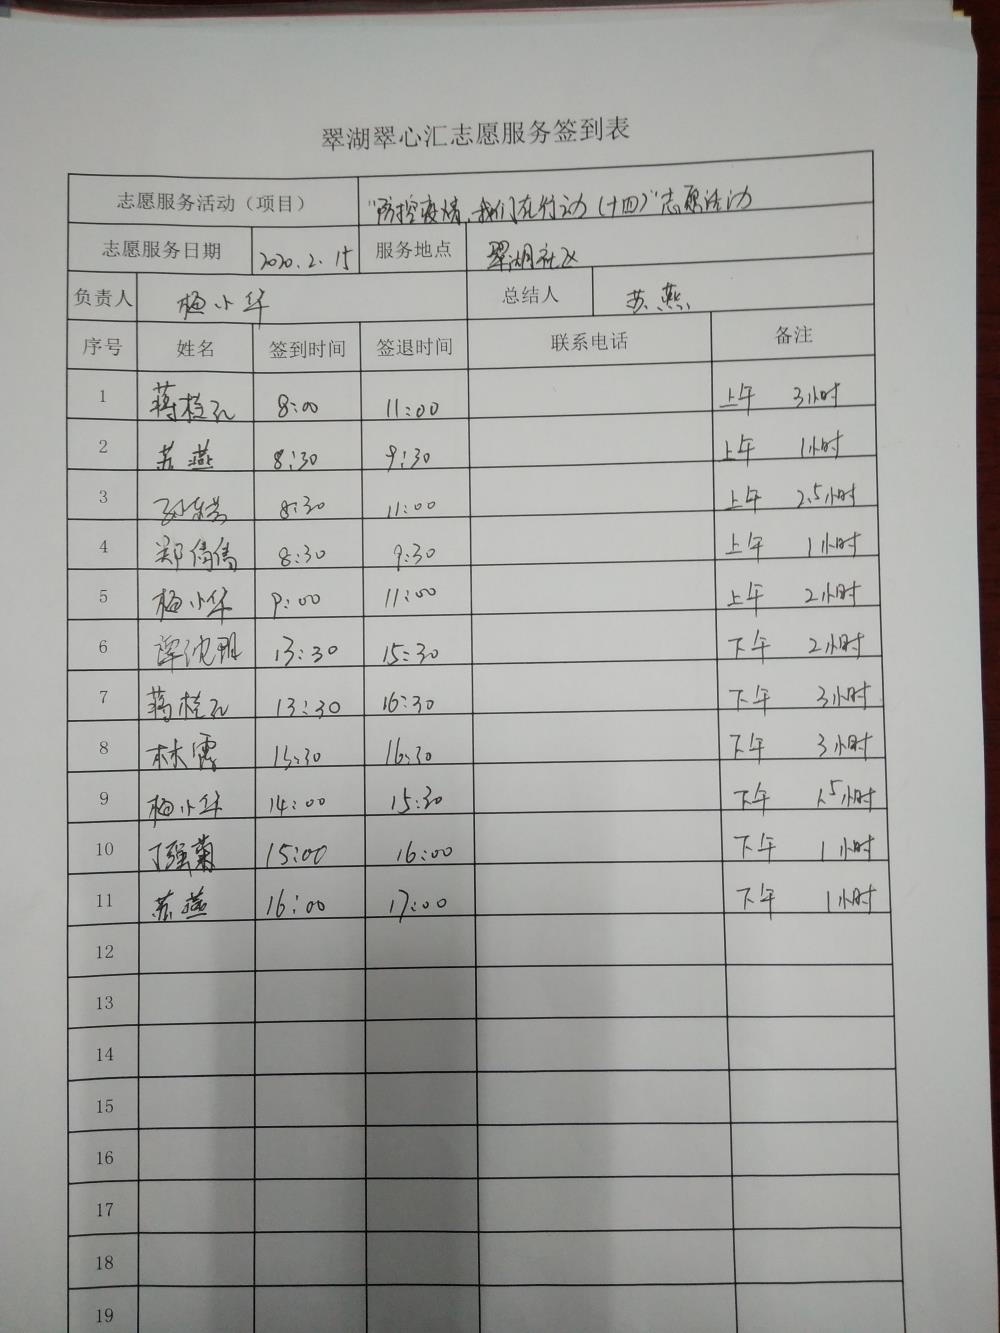 翠湖翠心汇志愿服务签到表
志愿服务活动（项目） "防控疫情，我们在行动（十四）"志愿活动
志愿服务日期 2020.2.15 服务地点 翠湖社区
负责人 梅小华 总结人 苏燕
序号 姓名 签到时间 签退时间 联系电话 备注
1 蒋桂孔 8:00 11:00 上午 3小时
2 苏燕 8:30 9:30 上午 1小时
3 8:30 11:00 上午 2.5小时
4 郑倩倩 8:30 9:30 上午 1小时
5 梅小华 9:00 11:00 上午 2小时
6 13:30 15:30 下午 2小时
7 蒋桂孔 13:30 16:30 下午 3小时
8 林霞 13:30 16:30 下午 3小时
9 梅小华 14:00 15:30 下午 1.5小时
10 丁强菊 15:00 16:00 下午 1小时
11 苏燕 16:00 17:00 下午 1小时
12
13
14
15
16
17
18
19